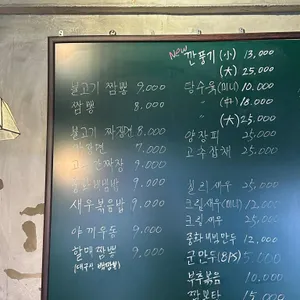 불고기 짬뽕 9.000
짬뽕 8.000
불고기 짜장면 8.000
7.000
고추간짜장 9.000
중화비빔밥 9.000
새우볶음밥 9.000
야끼우동 9.000
할매짬뽕 9.000
New 깐풍기 (小) 13.000
(大) 25.000
탕수육 (미니) 10.000
〃 (中) 18.000
〃 (大) 25.000
양장피 25.000
고추잡채 25.000
칠리새우 25.000
크림새우 (미니) 12.000
크림새우 25.000
중화비빔만두 12.000
군만두 (8PS) 5.000
부추볶음 10.000
짬뽕탕 15.000